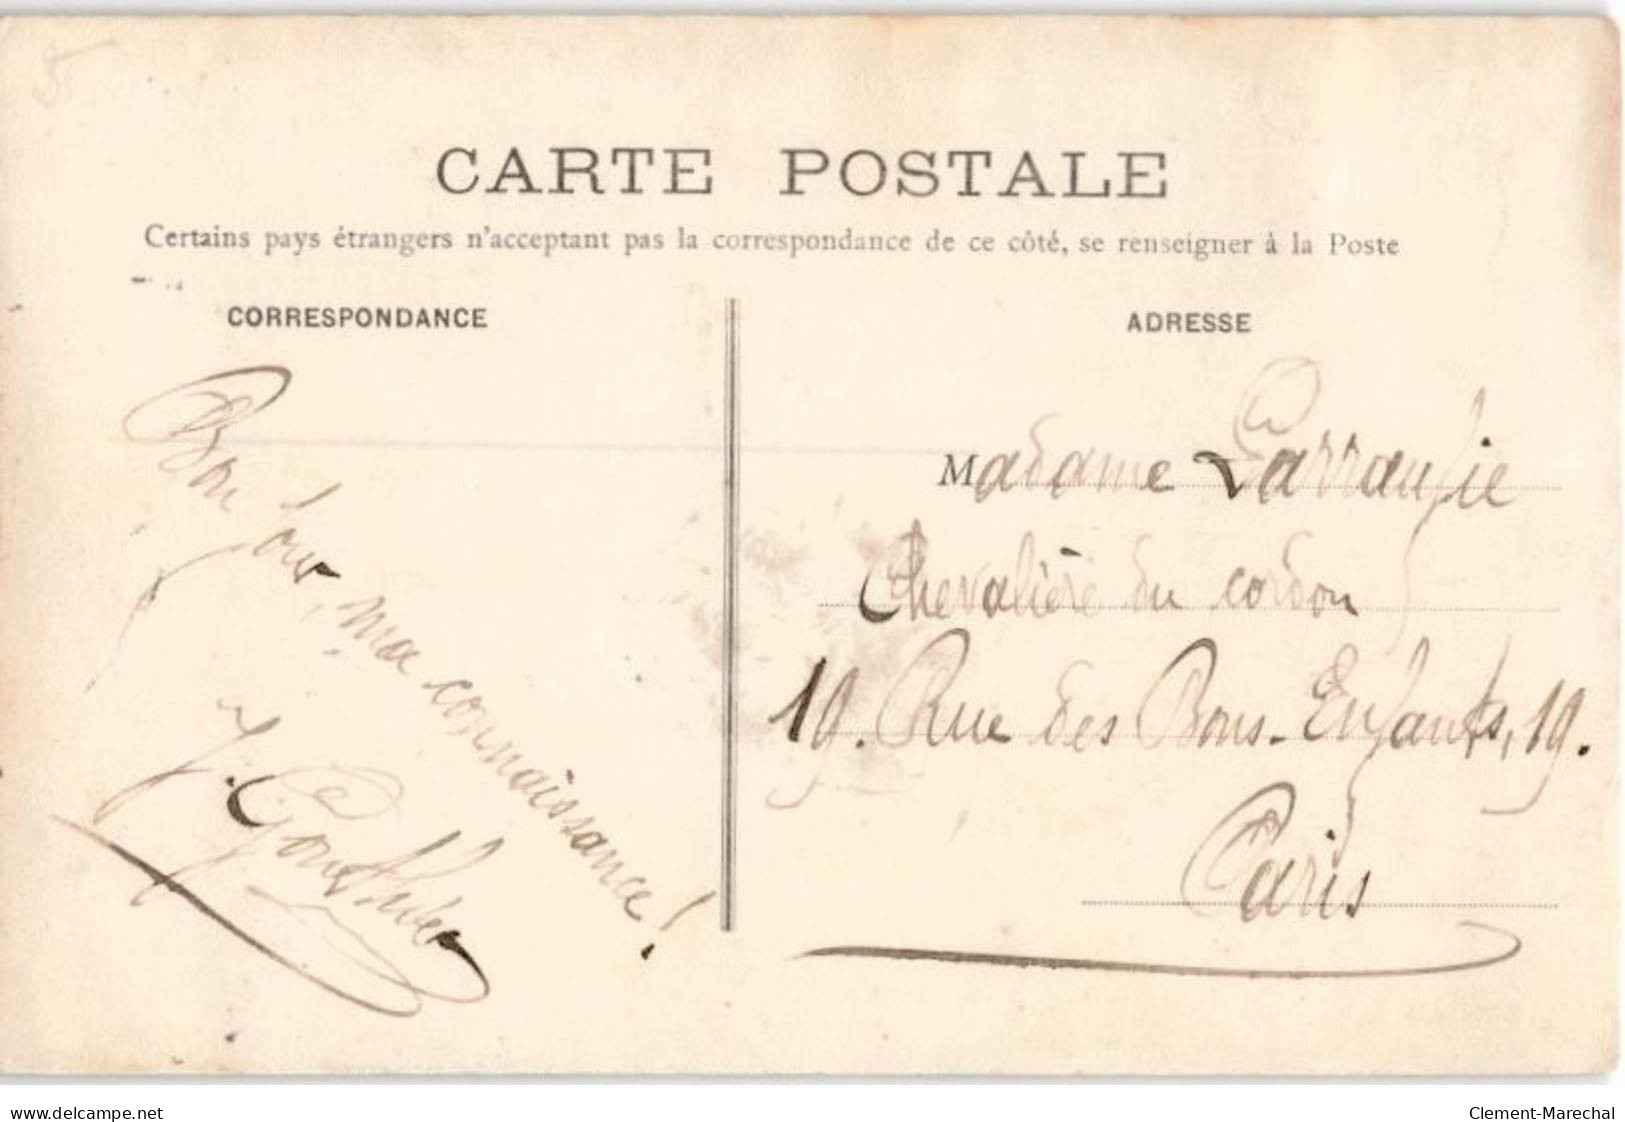 5
CARTE POSTALE
Certains pays étrangers n'acceptant pas la correspondance de ce côté, se renseigner à la Poste
CORRESPONDANCE
Bonjour, ma connaissance!
J.
ADRESSE
Madame
Chevalière du cordon
19. Rue des Bons-Enfants, 19.
Paris
www.delcampe.net
Clement-Marechal